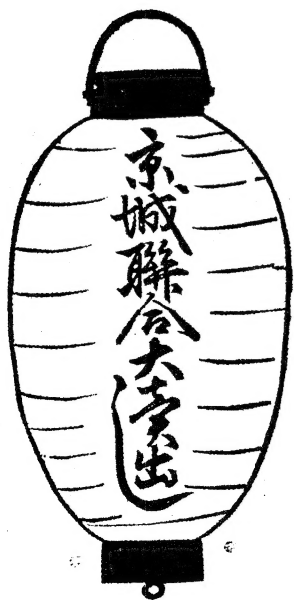 京城聯合大賣出し